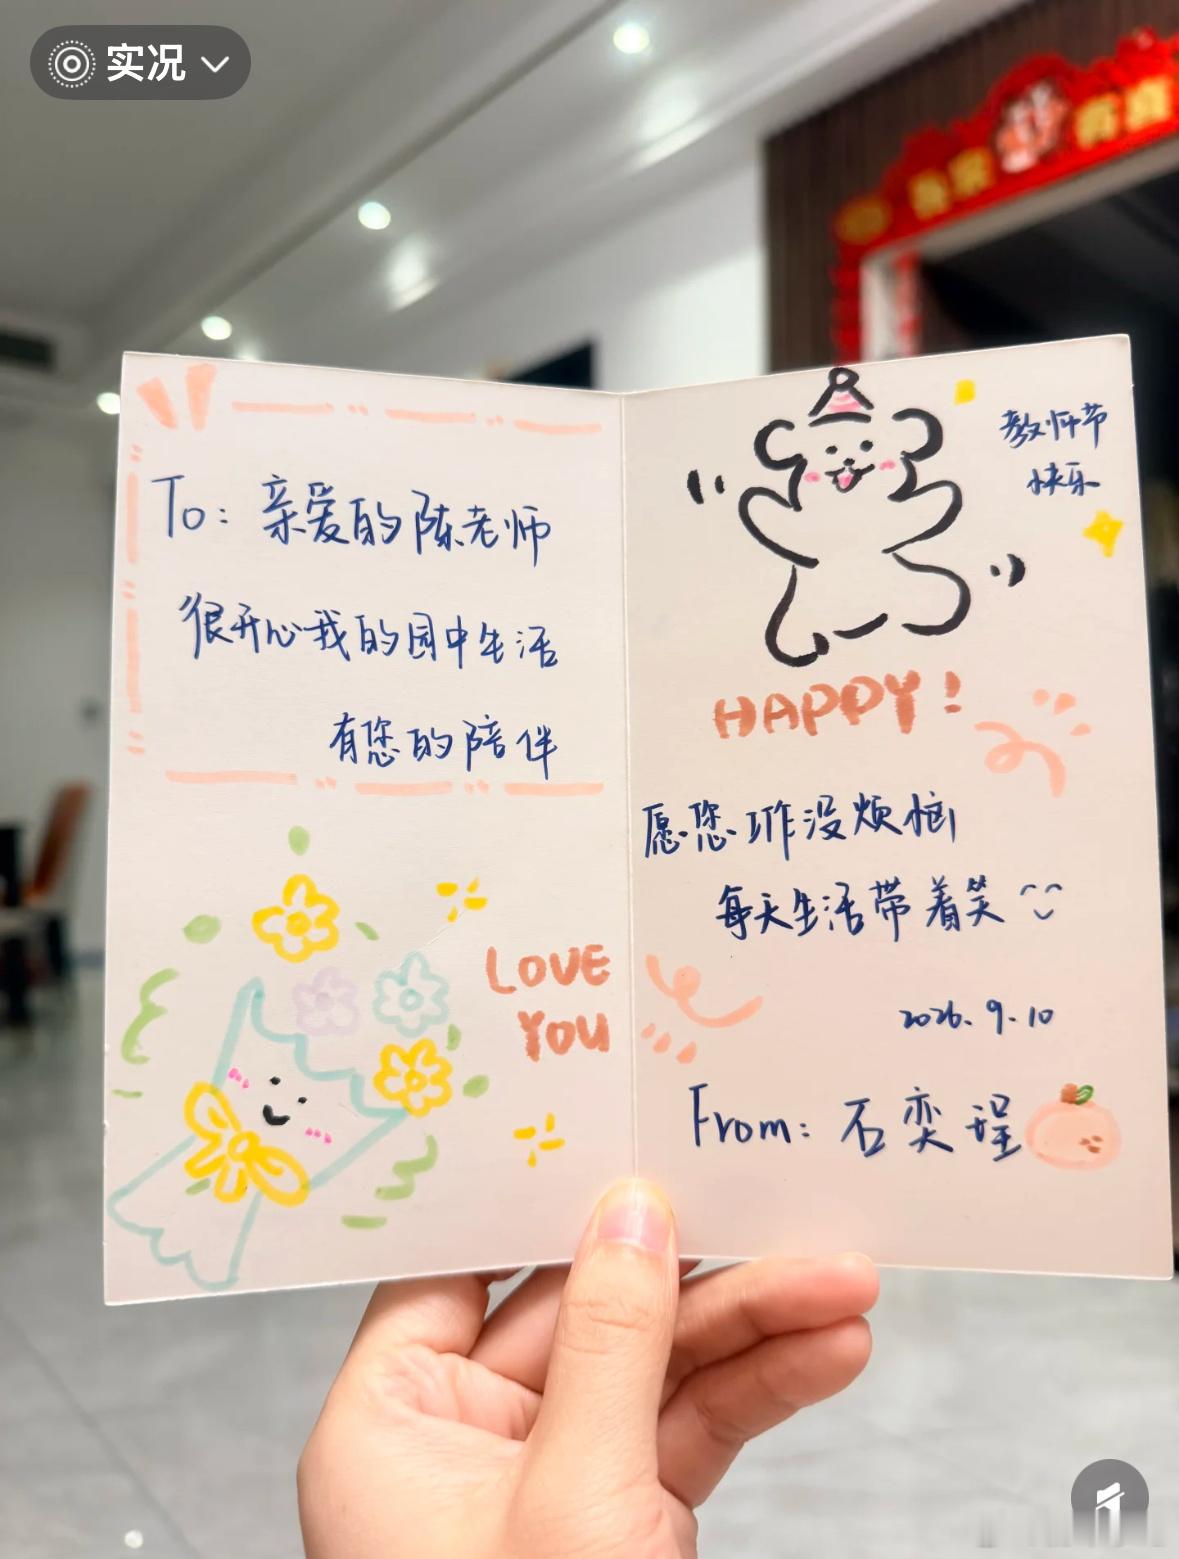 实况
To: 亲爱的陈老师
很开心我的园中生活
有您的陪伴
LOVE
YOU
教师节
快乐
HAPPY!
愿您工作没烦恼
每天生活带着笑
2026.9.10
From: 石奕程